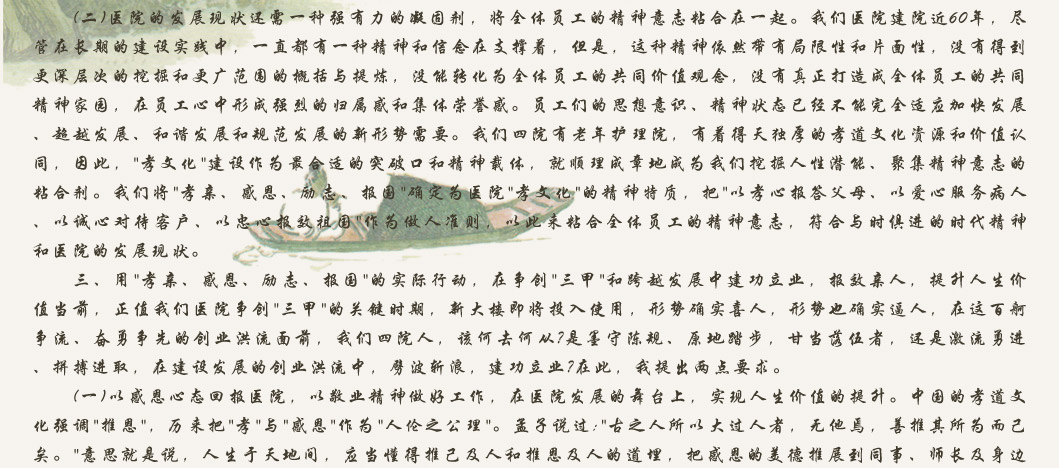 (二)医院的发展现状还需一种强有力的凝固剂，将全体员工的精神意志粘合在一起。我们医院建院近60年，尽
管在长期的建设实践中，一直都有一种精神和信念在支撑着，但是，这种精神依然带有局限性和片面性，没有得到
更深层次的挖掘和更广范围的概括与提炼，没能转化为全体员工的共同价值观念，没有真正打造成全体员工的共同
精神家园，在员工心中形成强烈的归属感和集体荣誉感。员工们的思想意识、精神状态已经不能完全适应加快发展
、超越发展、和谐发展和规范发展的新形势需要。我们四院有老年护理院，有着得天独厚的孝道文化资源和价值认
同，因此，"孝文化"建设作为最合适的突破口和精神载体，就顺理成章地成为我们挖掘人性潜能、聚集精神意志的
粘合剂。我们将"孝亲、感恩、励志、报国"确定为医院"孝文化"的精神特质，把"以孝心报答父母、以爱心服务病人
、以诚心对待客户、以忠心报效祖国"作为做人准则，以此来粘合全体员工的精神意志，符合与时俱进的时代精神
和医院的发展现状。
三、用"孝亲、感恩、励志、报国"的实际行动，在争创"三甲"和跨越发展中建功立业，报效亲人，提升人生价
值当前，正值我们医院争创"三甲"的关键时期，新大楼即将投入使用，形势确实喜人，形势也确实逼人，在这百舸
争流、奋勇争先的创业洪流面前，我们四院人，该何去何从?是墨守陈规、原地踏步，甘当落伍者，还是激流勇进
、拼搏进取，在建设发展的创业洪流中，劈波斩浪，建功立业?在此，我提出两点要求。
(一)以感恩心态回报医院，以敬业精神做好工作，在医院发展的舞台上，实现人生价值的提升。中国的孝道文
化强调"推恩"，历来把"孝"与"感恩"作为"人伦之公理"。孟子说过:"古之人所以大过人者，无他焉，善推其所为而已
矣。"意思就是说，人生于天地间，应当懂得推己及人和推恩及人的道理，把感恩的美德推展到同事、师长及身边